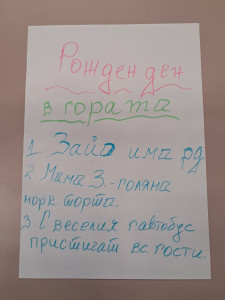 Рожден ден
в гората
1 Зайо има рд
2 Мама З. - голяма
морк. торта.
3. С веселия автобус
пристигат вс. гости